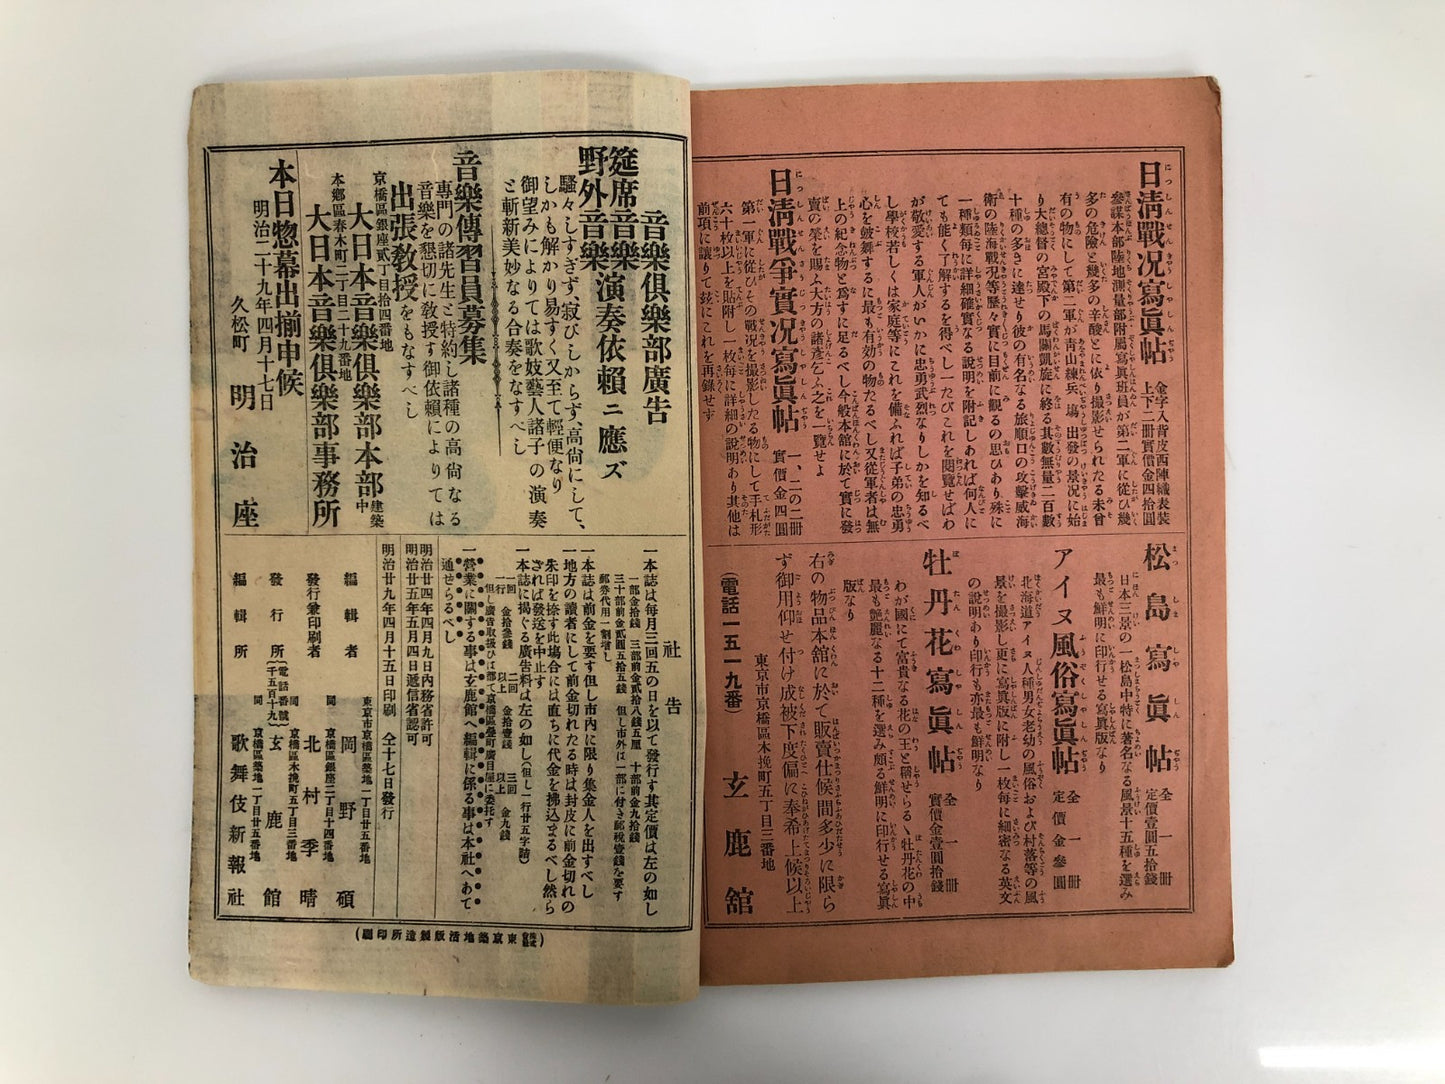 日淸戰况寫眞帖 金字入背皮西陣織表裝 上下二冊實價金四拾圓
參謀本部陸地測量部附屬寫眞班員が第二軍に從ひ幾
多の危險と幾多の辛酸とに依り撮影せられたる未曾
有の物にして第二軍が靑山練兵塲出發の景况に始
り大總督の宮殿下の馬關凱旋に終る其數無量二百數
十種の多きに達せり彼の有名なる旅順口の攻擊威海
衛の陸海戰况等歷々實に目前に觀るの思ひあり殊に
一種類每に詳細確實なる說明を附記しあれば何人に
ても能く了解するを得べし一たびこれを閱覽せばわ
が敬愛する軍人がいかに忠勇武烈なりしかを知るべ
し學校若しくは家庭等にこれを備ふれば子弟の忠勇
心を皷舞するに最も有効の物たるべし又從軍者は無
上の紀念物と爲すに足るべし今般本館に於て實に發
賣の榮を賜ふ大方の諸彥乞ふ之を一覽せよ
日淸戰爭實况寫眞帖 一、二の二冊 實價金四圓
第一軍に從ひその戰况を撮影したる物にして手札形
六十枚以上を貼附し一枚每に詳細の說明あり其他は
前項に讓りて玆にこれを再錄せず
松島寫眞帖 全一冊 定價壹圓五拾錢
日本三景の一松島中特に著名なる風景十五種を選み
最も鮮明に印行せる寫眞版なり
アイヌ風俗寫眞帖 全一冊 定價金參圓
北海道アイヌ人種男女老幼の風俗および村落等の風
景を撮影し更に寫眞版に附し一枚每に細密なる英文
の說明あり印行も亦最も鮮明なり
牡丹花寫眞帖 全一冊 實價金壹圓拾錢
わが國にて富貴なる花の王と稱せらるゝ牡丹花の中
最も艷麗なる十二種を選み頗る鮮明に印行せる寫眞
版なり
右の物品本舘に於て販賣仕候間多少に限ら
ず御用仰せ付け成被下度偏に奉希上候以上
東京市京橋區木挽町五丁目三番地
(電話一五一九番) 玄鹿舘
音樂俱樂部廣告
筵席音樂
野外音樂演奏依賴ニ應ズ
騷々しすぎず、寂びしからず、高尙にして、
しかも解かり易すく又至て輕便なり
御望みによりては歌妓藝人諸子の演奏
と斬新美妙なる合奏をなすべし
音樂傳習員募集
專門の諸先生と特約し諸種の高尙なる
音樂を懇切に敎授す御依賴によりては
出張敎授をもなすべし
京橋區銀座貳丁目拾四番地
大日本音樂俱樂部本部 建築中
本鄕區春木町二丁目二十九番地
大日本音樂俱樂部事務所
本日惣幕出揃申候
明治二十九年四月十七日
久松町 明治座
社告
一本誌は每月三回五の日を以て發行す其定價は左の如し
一部金拾錢 三部前金貳拾八錢五厘 十部前金九拾錢
三十部前金貳圓五拾五錢 但し市外は一部に付き郵稅壹錢を要す
郵券代用一割增し
一本誌は前金を要す但し市內に限り集金人を出すべし
一地方の讀者にして前金切れたる時は封皮に前金切れの
朱印を捺す此塲合には直ちに代金を拂込まるべし然ら
されば發送を中止す
一本誌に揭ぐる廣告料は左の如し(但し一行廿五字詰)
一回 金拾參錢 二回以上 金拾壹錢 三回以上 金九錢
一營業に關する事は玄鹿館へ編輯に係る事は本社へあて
通せらるべし
明治廿四年四月九日內務省許可
明治廿五年五月四日遞信省認可
明治廿九年四月十五日印刷 仝十七日發行
東京市京橋區築地一丁目廿五番地
編輯者 岡野碩
京橋區銀座二丁目十四番地
發行兼印刷者 北村季晴
京橋區木挽町五丁目三番地
發行所 (電話番號千五百十九) 玄鹿館
京橋區築地一丁目廿五番地
編輯所 歌舞伎新報社
(株式會社東京築地活版製造所印刷)